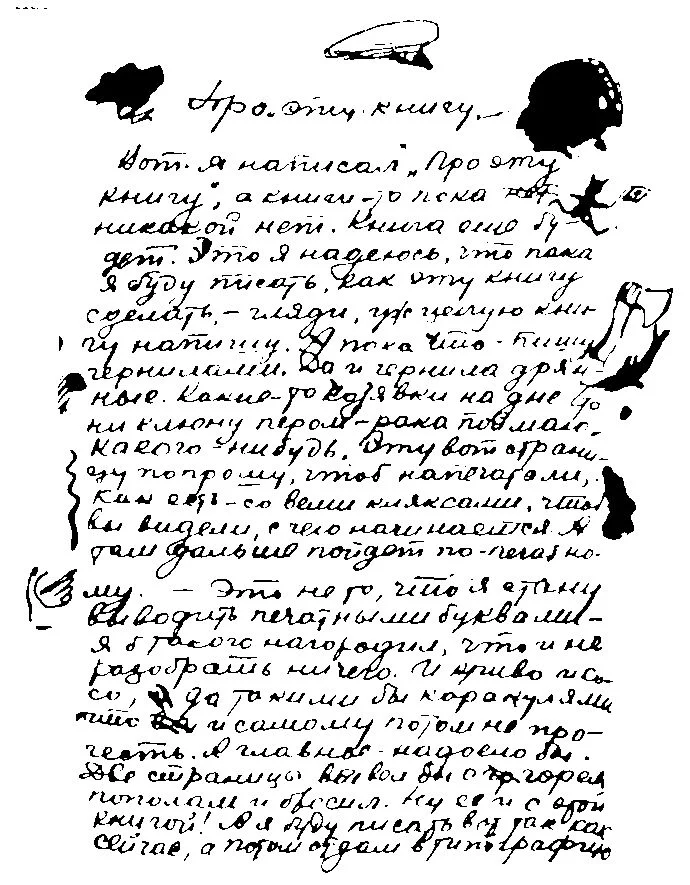 Про эту книгу.
Вот я написал „Про эту
книгу", а книги-то пока
никакой нет. Книга еще бу-
дет. Это я надеюсь, что пока
я буду писать, как эту книгу
сделать, – гляди, уж целую кни-
гу напишу. А пока что – пишу
чернилами. Да и чернила дрян-
ные. Какие-то козявки на дне
ни клюну пером – рака поймаю
какого-нибудь. Эту вот страни-
цу попрошу, чтоб напечатали,
как есть – со всеми кляксами, чтоб
вы видели, с чего начинается А
там дальше пойдет по-печатно-
му. – Это не то, что я стану
выводить печатными буквами –
я б такого нагородил, что и не
разобрать ничего. И криво и со-
со, да такими бы каракулями
что и самому потом не про-
честь. А главное – надоело бы.
Две страницы вывел бы с горем
пополам и бросил. Ну ее и с этой
книгой! А я буду писать вот так как
сейчас, а потом отдам в типографию